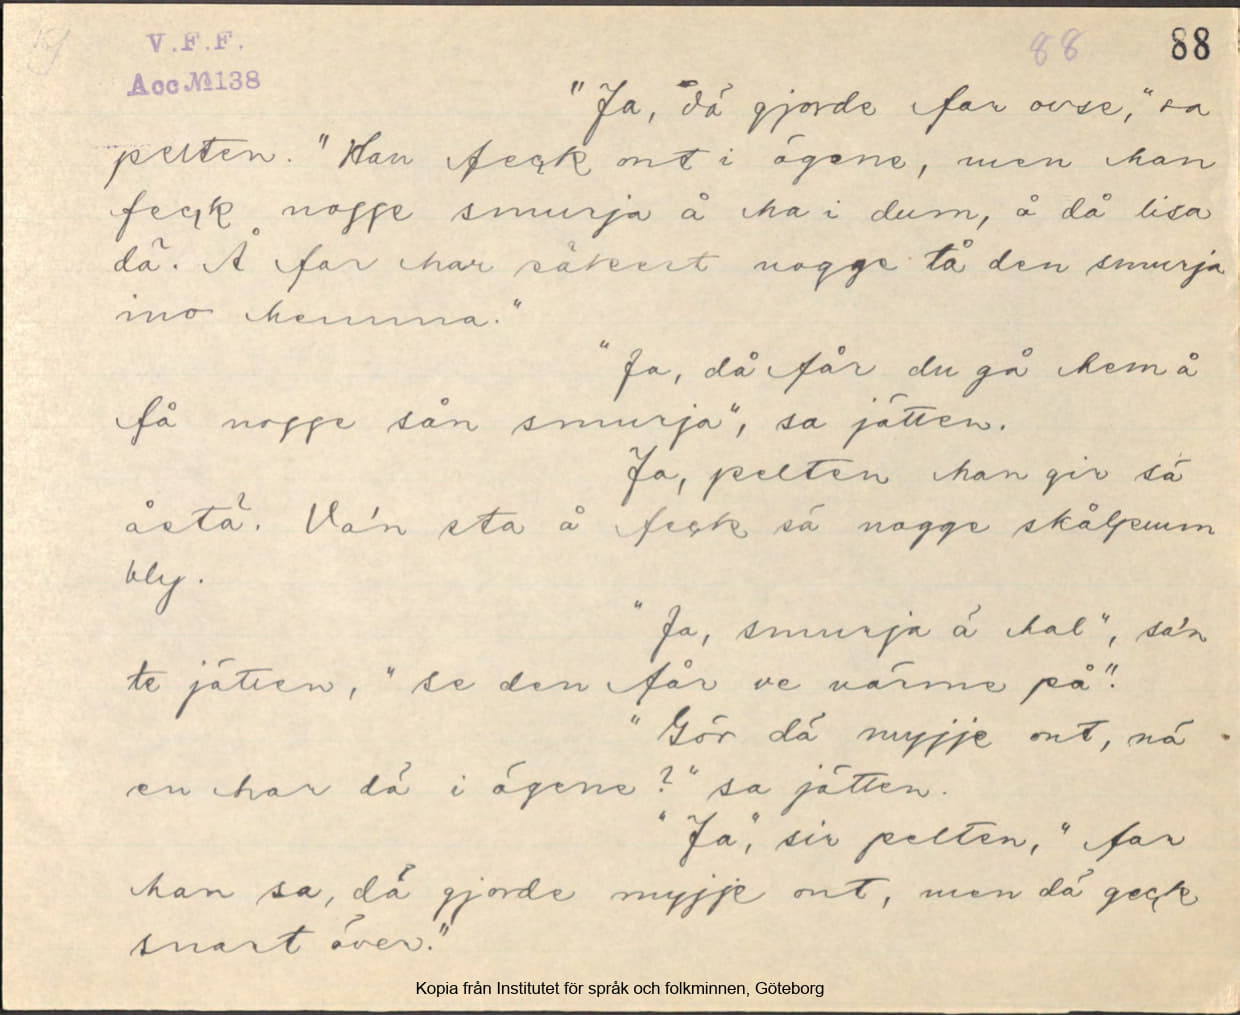 V.F.F.
Acc № 138
88
88
"Ja, dä gjorde far ovse," sa
pelten. "Han feck ont i ögene, men han
feck nogge smurja å ha i dum, å då lisa
dä. Å far har säkert nogge tå den smurja
ino hemma."
"Ja, då får du gå hem å
få nogge sån smurja", sa jätten.
Ja, pelten han gir sä
åstä. Va'n sta å feck sä nogge skålpeum
bly.
"Ja, smurja ä hal", sa'n
te jätten, "se den får ve värme på".
"Gör dä myjje ont, nä
en har dä i ögene?" sa jätten.
"Ja", sir pelten, "far
han sa, dä gjorde myjje ont, men dä geck
snart över."
Kopia från Institutet för språk och folkminnen, Göteborg